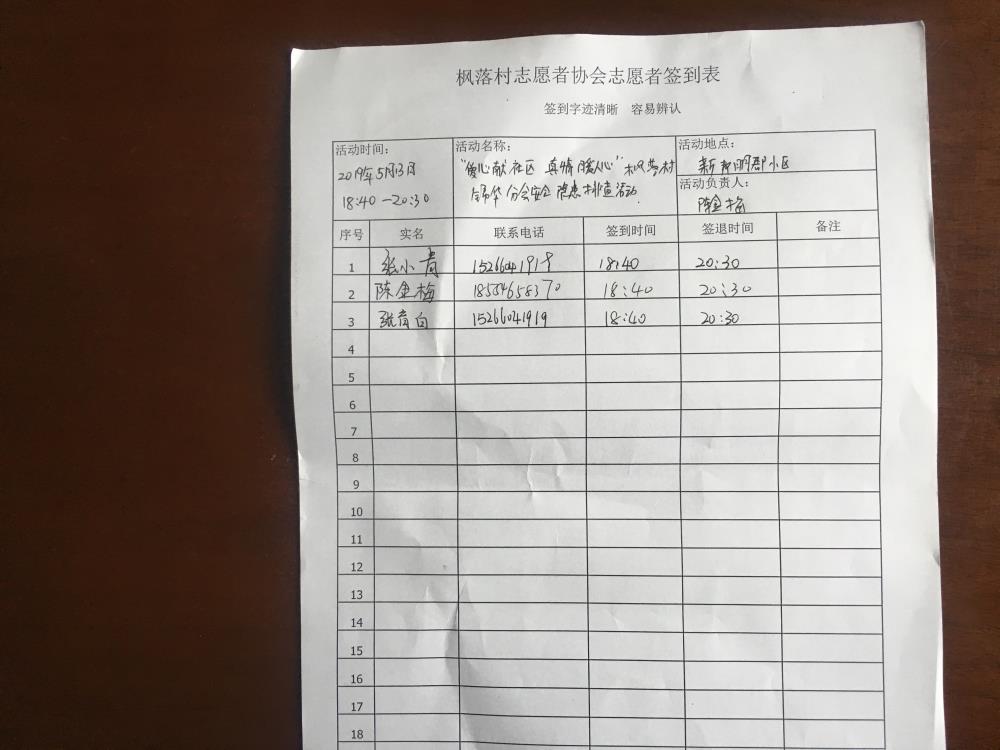 枫落村志愿者协会志愿者签到表
签到字迹清晰 容易辨认
活动时间：
2019年5月13日
18:40—20:30
活动名称：
"爱心献社区 真情暖人心"枫落村
分会安全隐患排查活动.
活动地点：
新 明郡小区
活动负责人：
陈金梅
序号 实名 联系电话 签到时间 签退时间 备注
1 张小青 15266041918 18:40 20:30
2 陈金梅 18554658370 18:40 20:30
3 张青白 15266041919 18:40 20:30
4
5
6
7
8
9
10
11
12
13
14
15
16
17
18